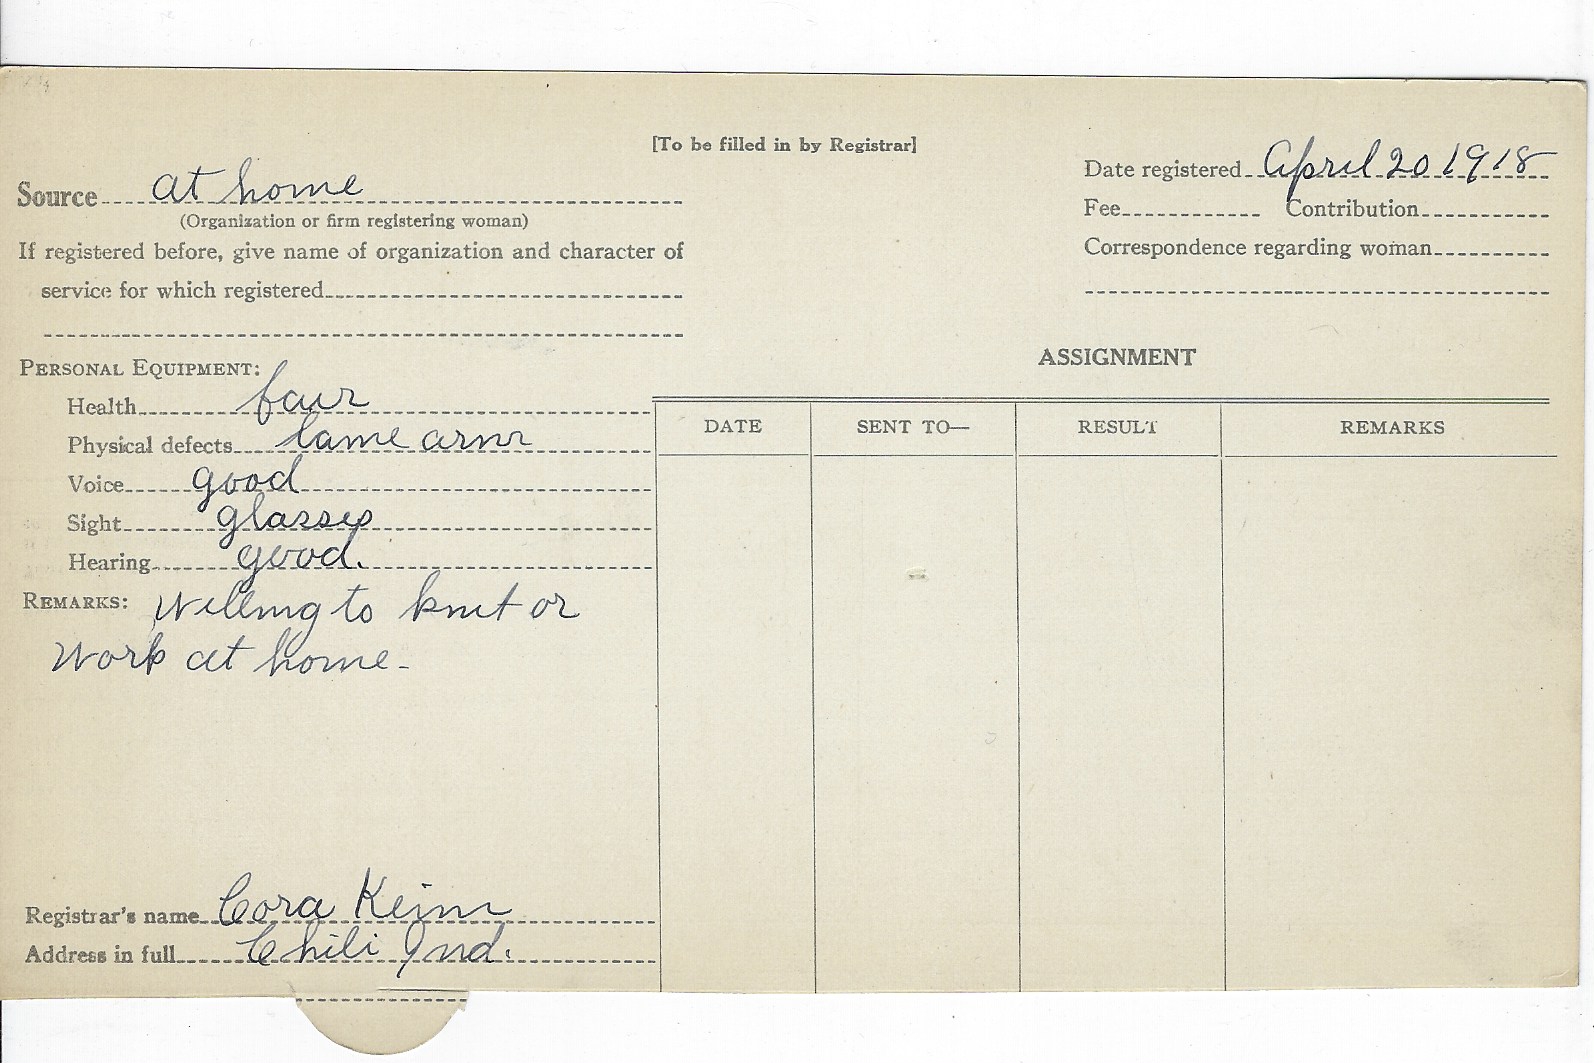 [To be filled in by Registrar]
Source at home
(Organization or firm registering woman)
If registered before, give name of organization and character of
service for which registered
Date registered April 20 1918
Fee Contribution
Correspondence regarding woman
PERSONAL EQUIPMENT:
Health fair
Physical defects lame arm
Voice good
Sight glasses
Hearing good.
REMARKS: Willing to knit or
Work at home-
Registrar's name Cora Keim
Address in full Chili Ind.
ASSIGNMENT
DATE SENT TO— RESULT REMARKS